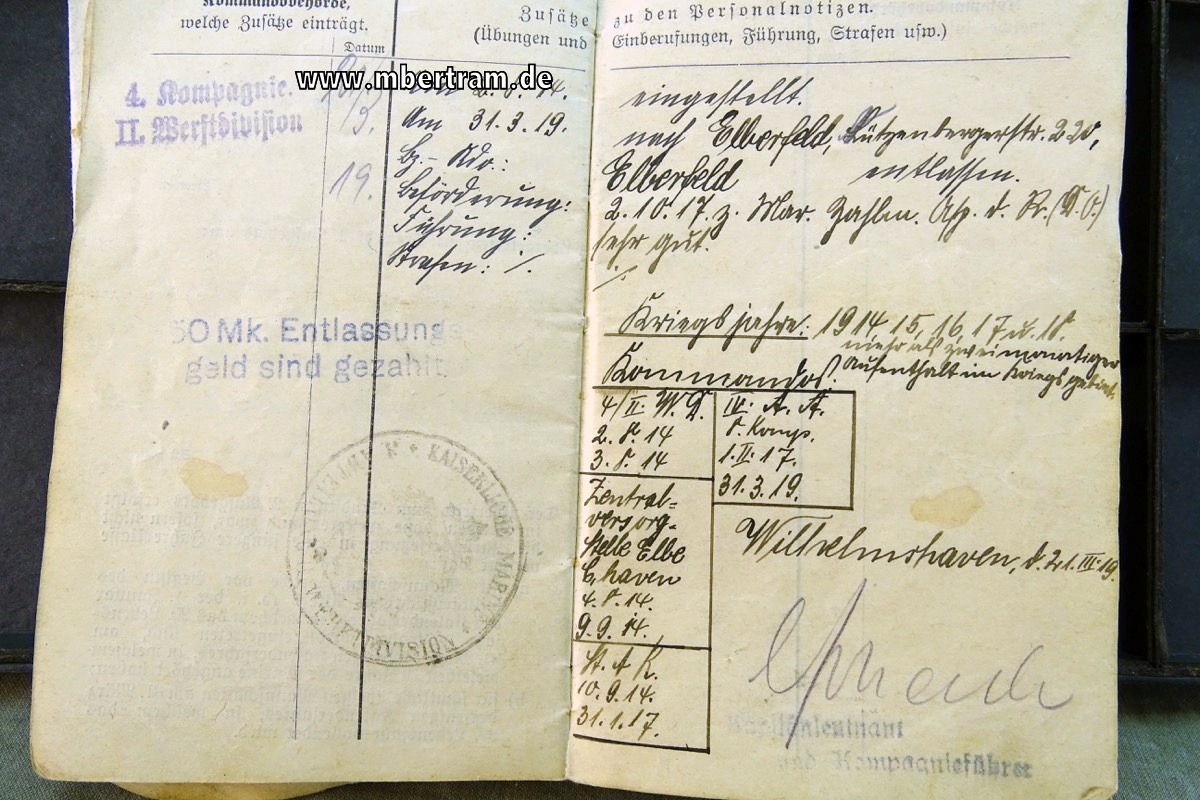 Kommandobehörde,
welche Zusätze einträgt.
Datum
Zusätze
(Übungen und
zu den Personalnotizen.
Einberufungen, Führung, Strafen usw.)
www.mbertram.de
4. Kompagnie.
II. Werftdivision
19.
Am 2.8.14. eingestellt.
Am 31.3.19. nach Elberfeld, Lützenbergerstr. 220,
Bz.-Kdo.: Elberfeld entlassen.
Beförderung: 2.10.17. z. Mar. Zahlm. Asp. d. R.
Führung: sehr gut.
Strafen: /.
50 Mk. Entlassungs
geld sind gezahlt.
Kriegsjahre: 1914, 15, 16, 17 u. 18.
mehr als zweimonatiger
Aufenthalt im Kriegsgebiet.
Kommandos.
4/II. W.D.
2.8.14
3.8.14
Zentral-
versorg-
stelle Elbe
C'haven
4.8.14.
9.9.14.
10.9.14.
31.1.17.
IV. A. A.
8. Komp.
1.II.17.
31.3.19.
Wilhelmshaven, d. 21.III.19.
KAISERLICHE MARINE
WERFTDIVISION
Kapitänleutnant
und Kompagnieführer